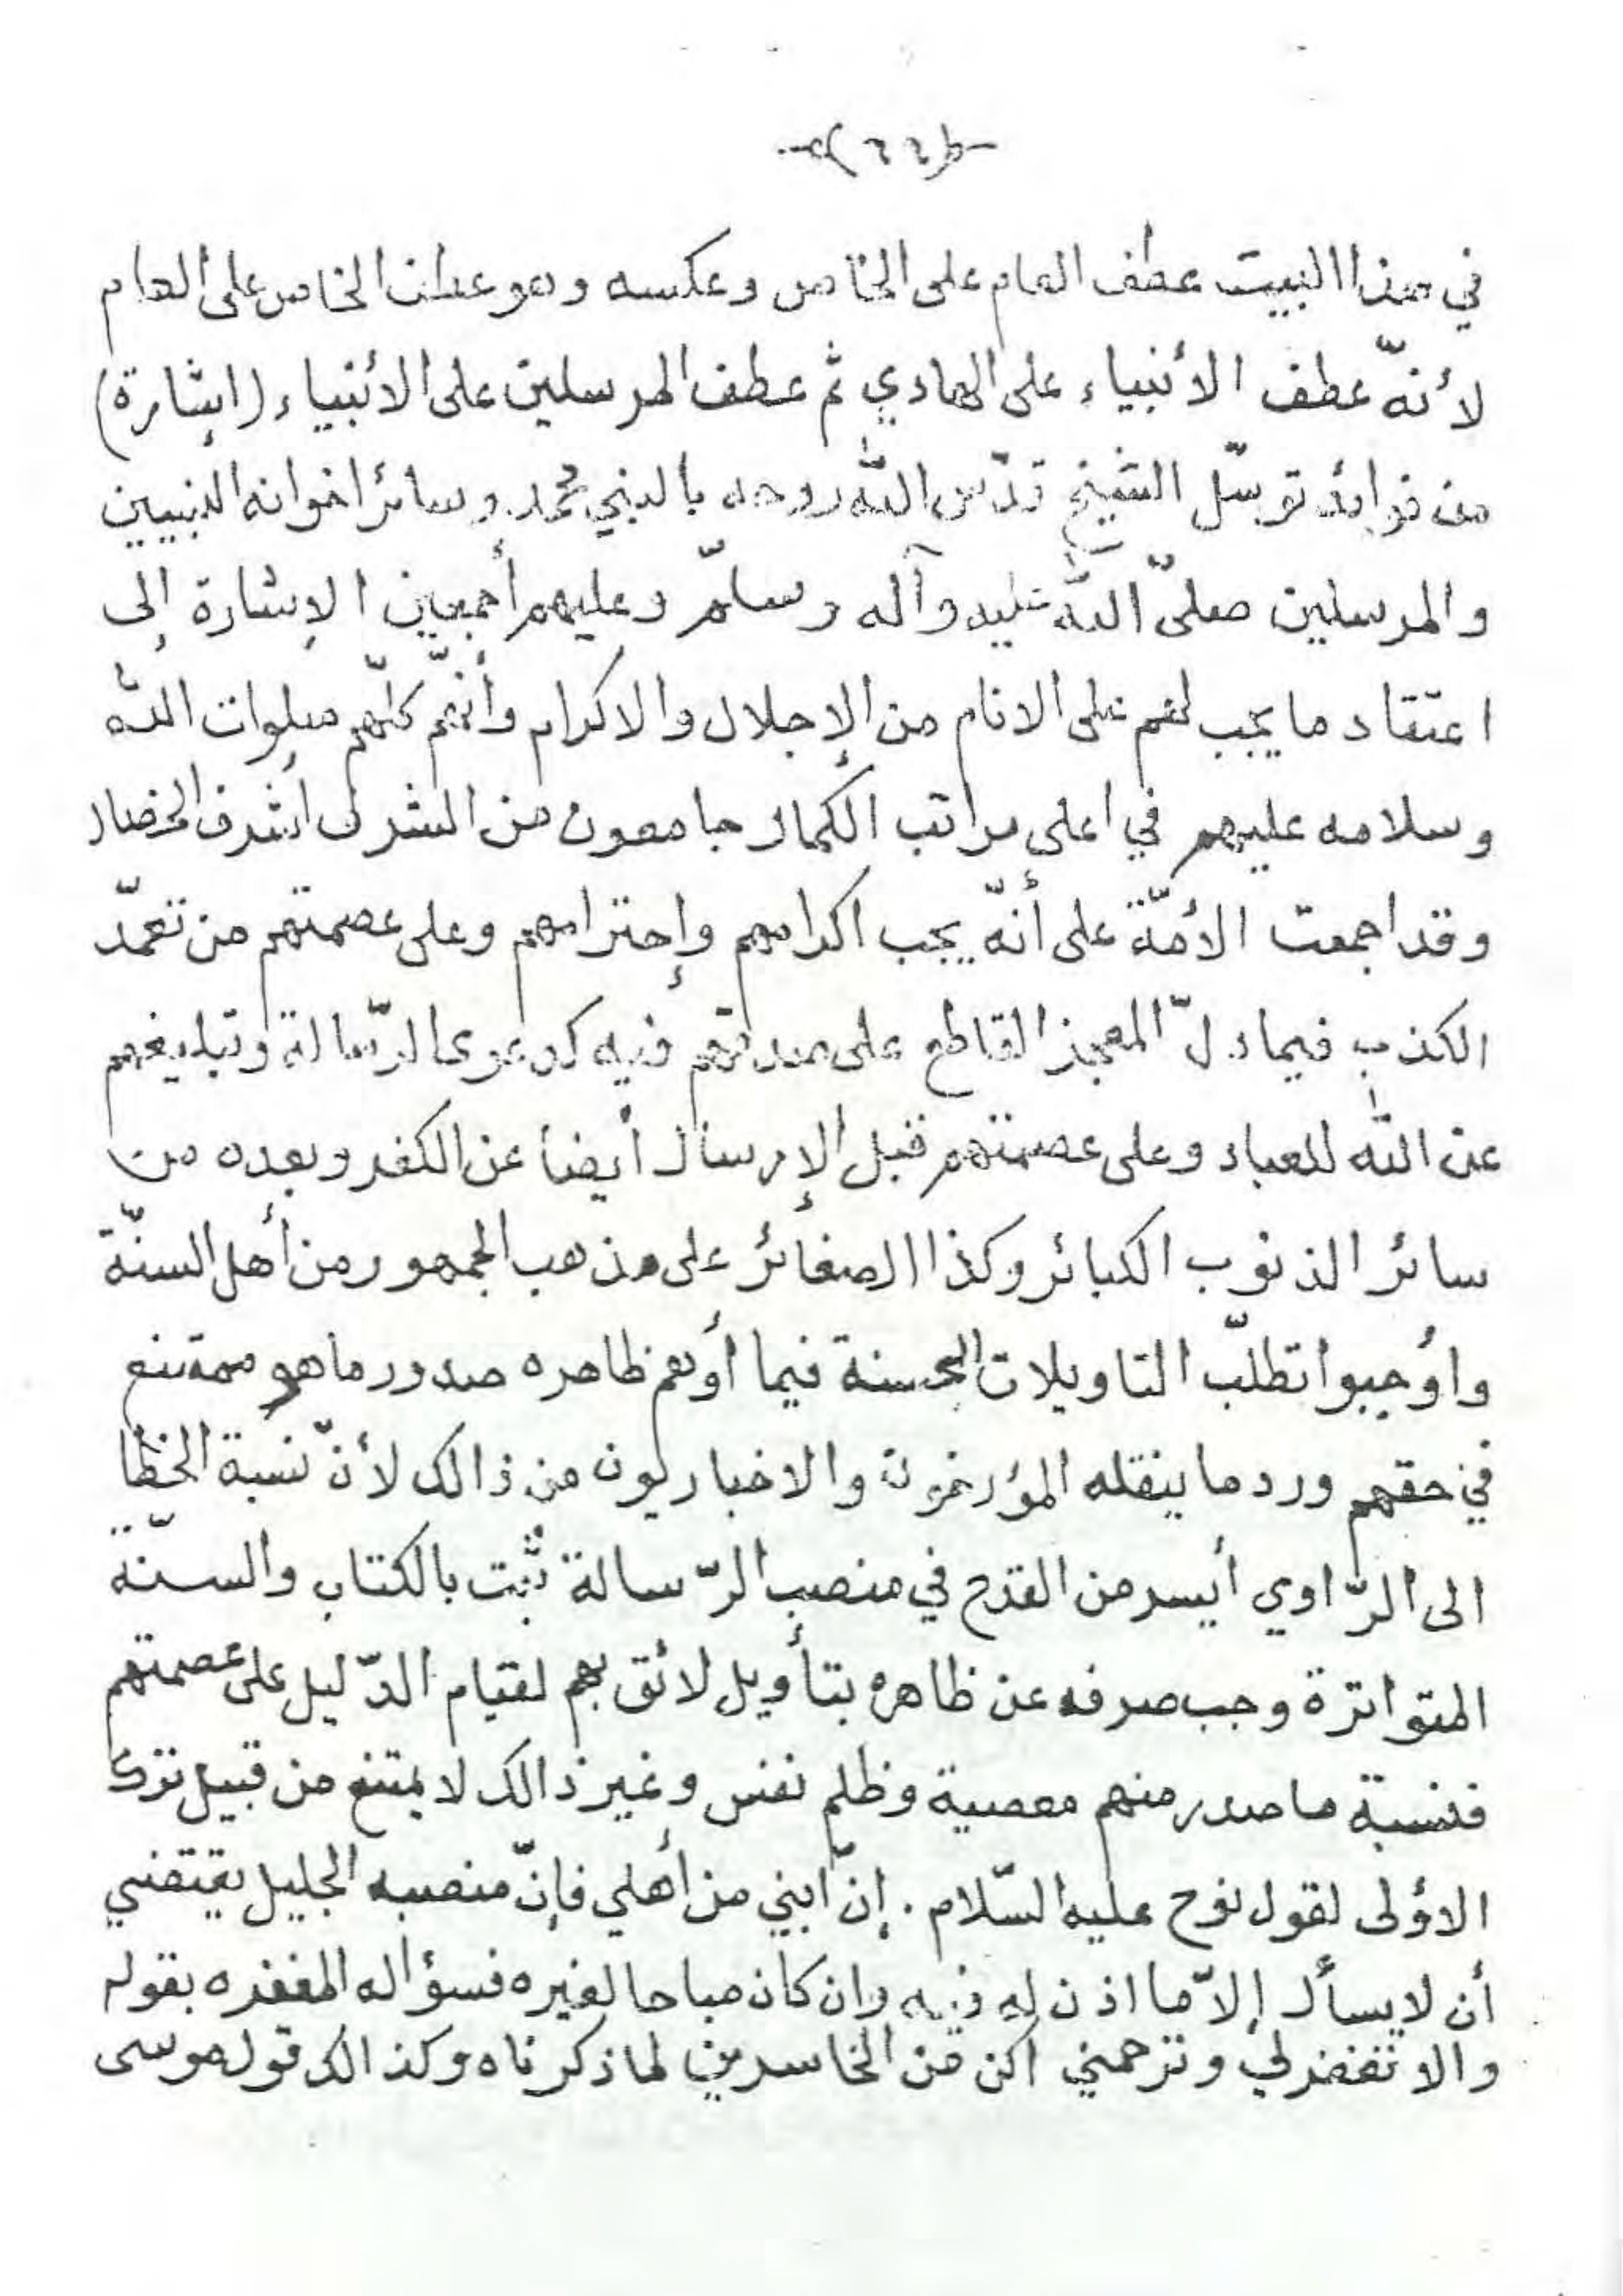 (٤٤)
في هذا البيت عطف العام على الخاص وعكسه وهو عطف الخاص على العام
لأنّه عطف الأنبياء على الهادي ثم عطف المرسلين على الأنبياء (إشارة)
من فوائد توسّل الشيخ قدّس الله روحه بالنبي محمد وسائر اخوانه النبيين
والمرسلين صلىّ الله عليه وآله وسلّم وعليهم أجمعين الإشارة إلى
اعتقاد ما يجب لهم على الانام من الإجلال والاكرام وأنّهم كلّهم صلوات الله
وسلامه عليهم في اعلى مراتب الكمال جامعون من الشرف أشرف الخصال
وقد اجمعت الأمّة على أنّه يجب اكرامهم وإحترامهم وعلى عصمتهم من تعمّد
الكذب فيما دلّ المعجز القاطع على صدقهم فيه كدعوى الرّسالة وتبليغهم
عن الله للعباد وعلى عصمتهم قبل الإرسال أيضا عن الكفر وبعده من
سائر الذنوب الكبائر وكذا الصغائر على مذهب الجمهور من أهل السنّة
وأوجبوا تطلّب التاويلات الحسنة فيما أوهم ظاهره صدور ما هو ممتنع
في حقهم ورد ما ينقله المؤرخون والاخباريون من ذالك لأنّ نسبة الخطأ
الى الرّاوي أيسر من القدح في منصب الرّسالة ثبت بالكتاب والسنّة
المتواترة وجب صرفه عن ظاهره بتأويل لائق بهم لقيام الدّليل على عصمتهم
فنسبة ما صدر منهم معصية وظلم نفس وغير ذالك لا يمتنع من قبيل ترك
الاؤلى لقول نوح عليه السّلام . إنّ ابني من أهلي فإنّ منصبه الجليل يقتضي
أن لا يسأل إلاّ ما اذن له فيه وان كان مباحا لغيره فسؤاله المغفره بقوله
والا تغفر لي وترحمني أكن من الخاسرين لما ذكرناه وكذالك قول موسى